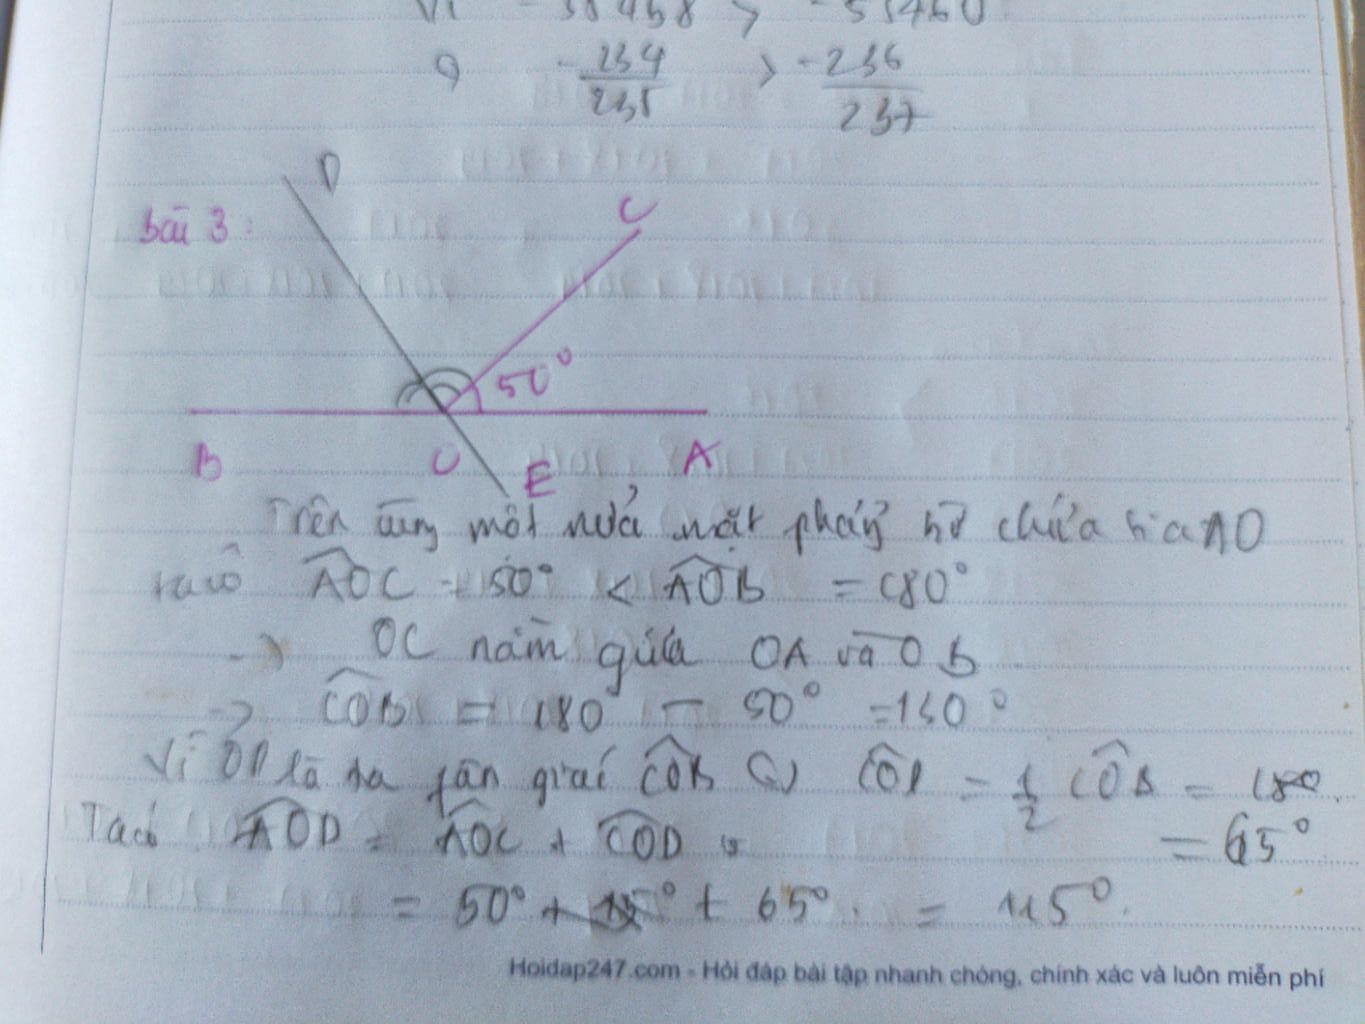 -234/235 > -236/237
bài 3:
D
C
50°
B O E A
Trên cùng một nửa mặt phẳng bờ chứa tia AO
ta có AOC = 50° < AOB = 180°
-> OC nằm giữa OA và OB
-> COB = 180° - 50° = 130°
Vì OD là tia phân giác COB COD = 1/2 COB =
= 65°
Ta có AOD = AOC + COD
= 50° + 65° = 115°.
Hoidap247.com - Hỏi đáp bài tập nhanh chóng, chính xác và luôn miễn phí